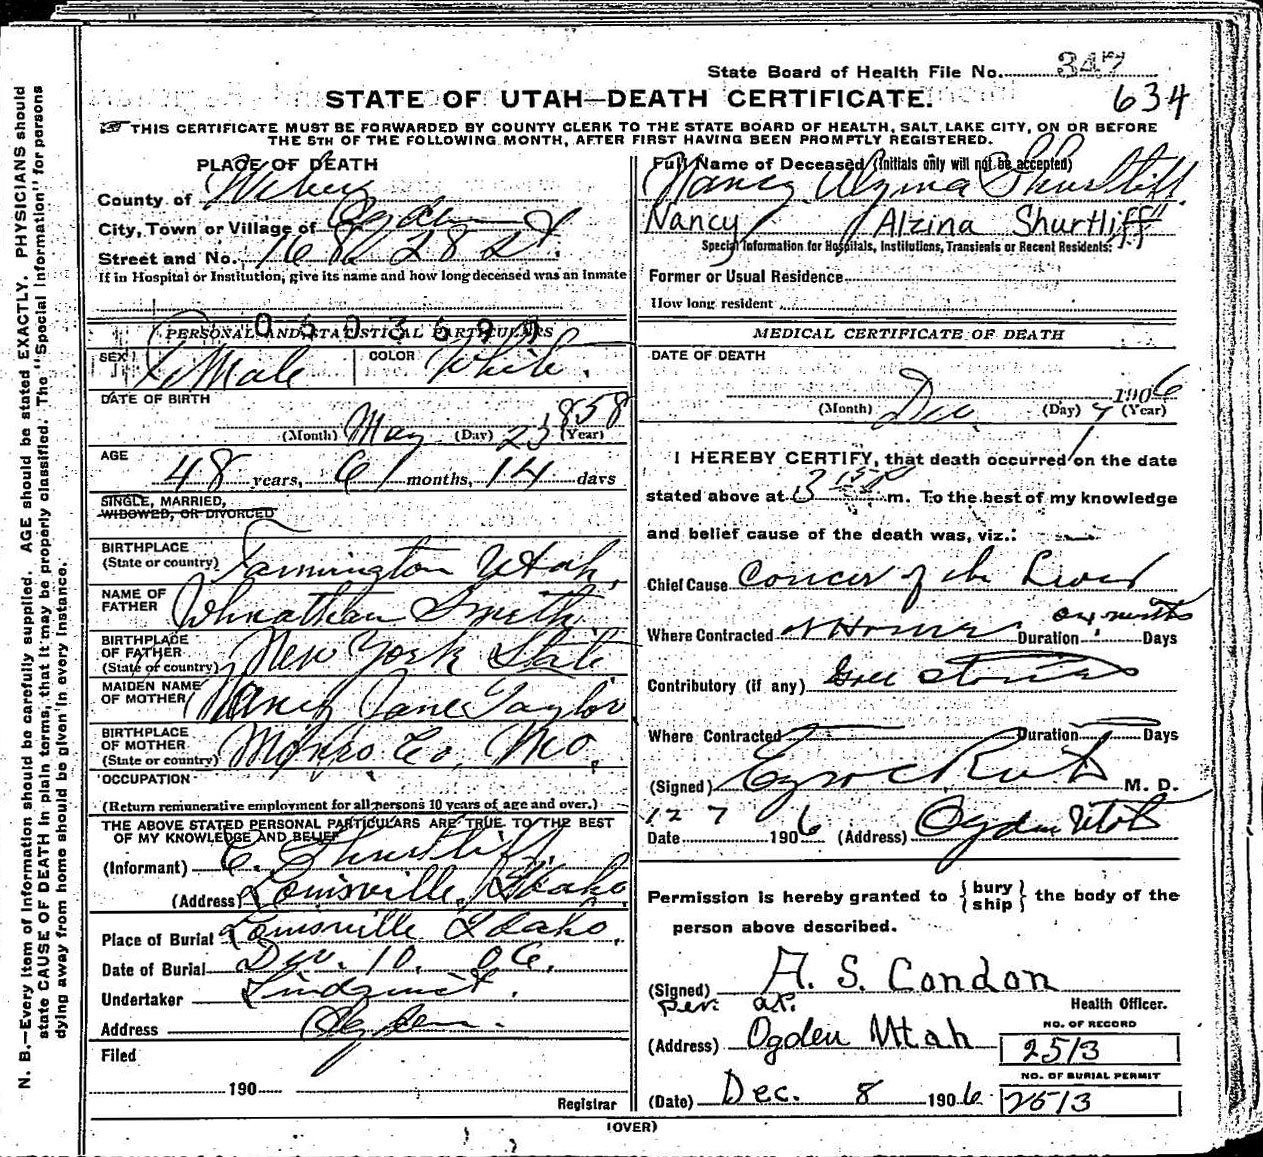 State Board of Health File No. 347
634
STATE OF UTAH—DEATH CERTIFICATE.
THIS CERTIFICATE MUST BE FORWARDED BY COUNTY CLERK TO THE STATE BOARD OF HEALTH, SALT LAKE CITY, ON OR BEFORE
THE 5TH OF THE FOLLOWING MONTH, AFTER FIRST HAVING BEEN PROMPTLY REGISTERED.
PLACE OF DEATH
County of Weber
City, Town or Village of Ogden
Street and No. 168 28 St
If in Hospital or Institution, give its name and how long deceased was an inmate
0503699
PERSONAL AND STATISTICAL PARTICULARS
SEX Female COLOR White.
DATE OF BIRTH
(Month) May (Day) 23 858 (Year)
AGE
48 years, 6 months, 14 days
SINGLE, MARRIED,
WIDOWED, OR DIVORCED
BIRTHPLACE
(State or country) Farmington Utah.
NAME OF
FATHER Johnathan Smith
BIRTHPLACE
OF FATHER
(State or country) New York State
MAIDEN NAME
OF MOTHER Nancy Jane Taylor
BIRTHPLACE
OF MOTHER
(State or country) Monro Co, Mo.
OCCUPATION
(Return remunerative employment for all persons 10 years of age and over.)
THE ABOVE STATED PERSONAL PARTICULARS ARE TRUE TO THE BEST
OF MY KNOWLEDGE AND BELIEF
(Informant) C. Shurtliff
(Address) Louisville, Idaho
Place of Burial Louisville Idaho.
Date of Burial Dec. 10. 06.
Undertaker Lindquist.
Address Ogden.
Filed
190
Registrar
Full Name of Deceased (Initials only will not be accepted)
Nancy Alzina Shurtliff
Nancy Alzina Shurtliff
Special Information for Hospitals, Institutions, Transients or Recent Residents:
Former or Usual Residence
How long resident
MEDICAL CERTIFICATE OF DEATH
DATE OF DEATH
(Month) Dec (Day) 7 1906 (Year)
I HEREBY CERTIFY, that death occurred on the date
stated above at 3 15 P m. To the best of my knowledge
and belief cause of the death was, viz.:
Chief Cause Cancer of the Liver
Where Contracted at Home Duration months Days
Contributory (if any) Gall Stones
Where Contracted Duration Days
(Signed) M. D.
12 7
Date 1906 (Address) Ogden Utah
Permission is hereby granted to { bury ship } the body of the
person above described.
(Signed) A. S. Condon
Per. Health Officer.
(Address) Ogden Utah
NO. OF RECORD
2513
NO. OF BURIAL PERMIT
2513
(Date) Dec. 8 1906
(OVER)
N. B.—Every item of information should be carefully supplied. AGE should be stated EXACTLY. PHYSICIANS should
state CAUSE OF DEATH in plain terms, that it may be properly classified. The "Special Information" for persons
dying away from home should be given in every instance.